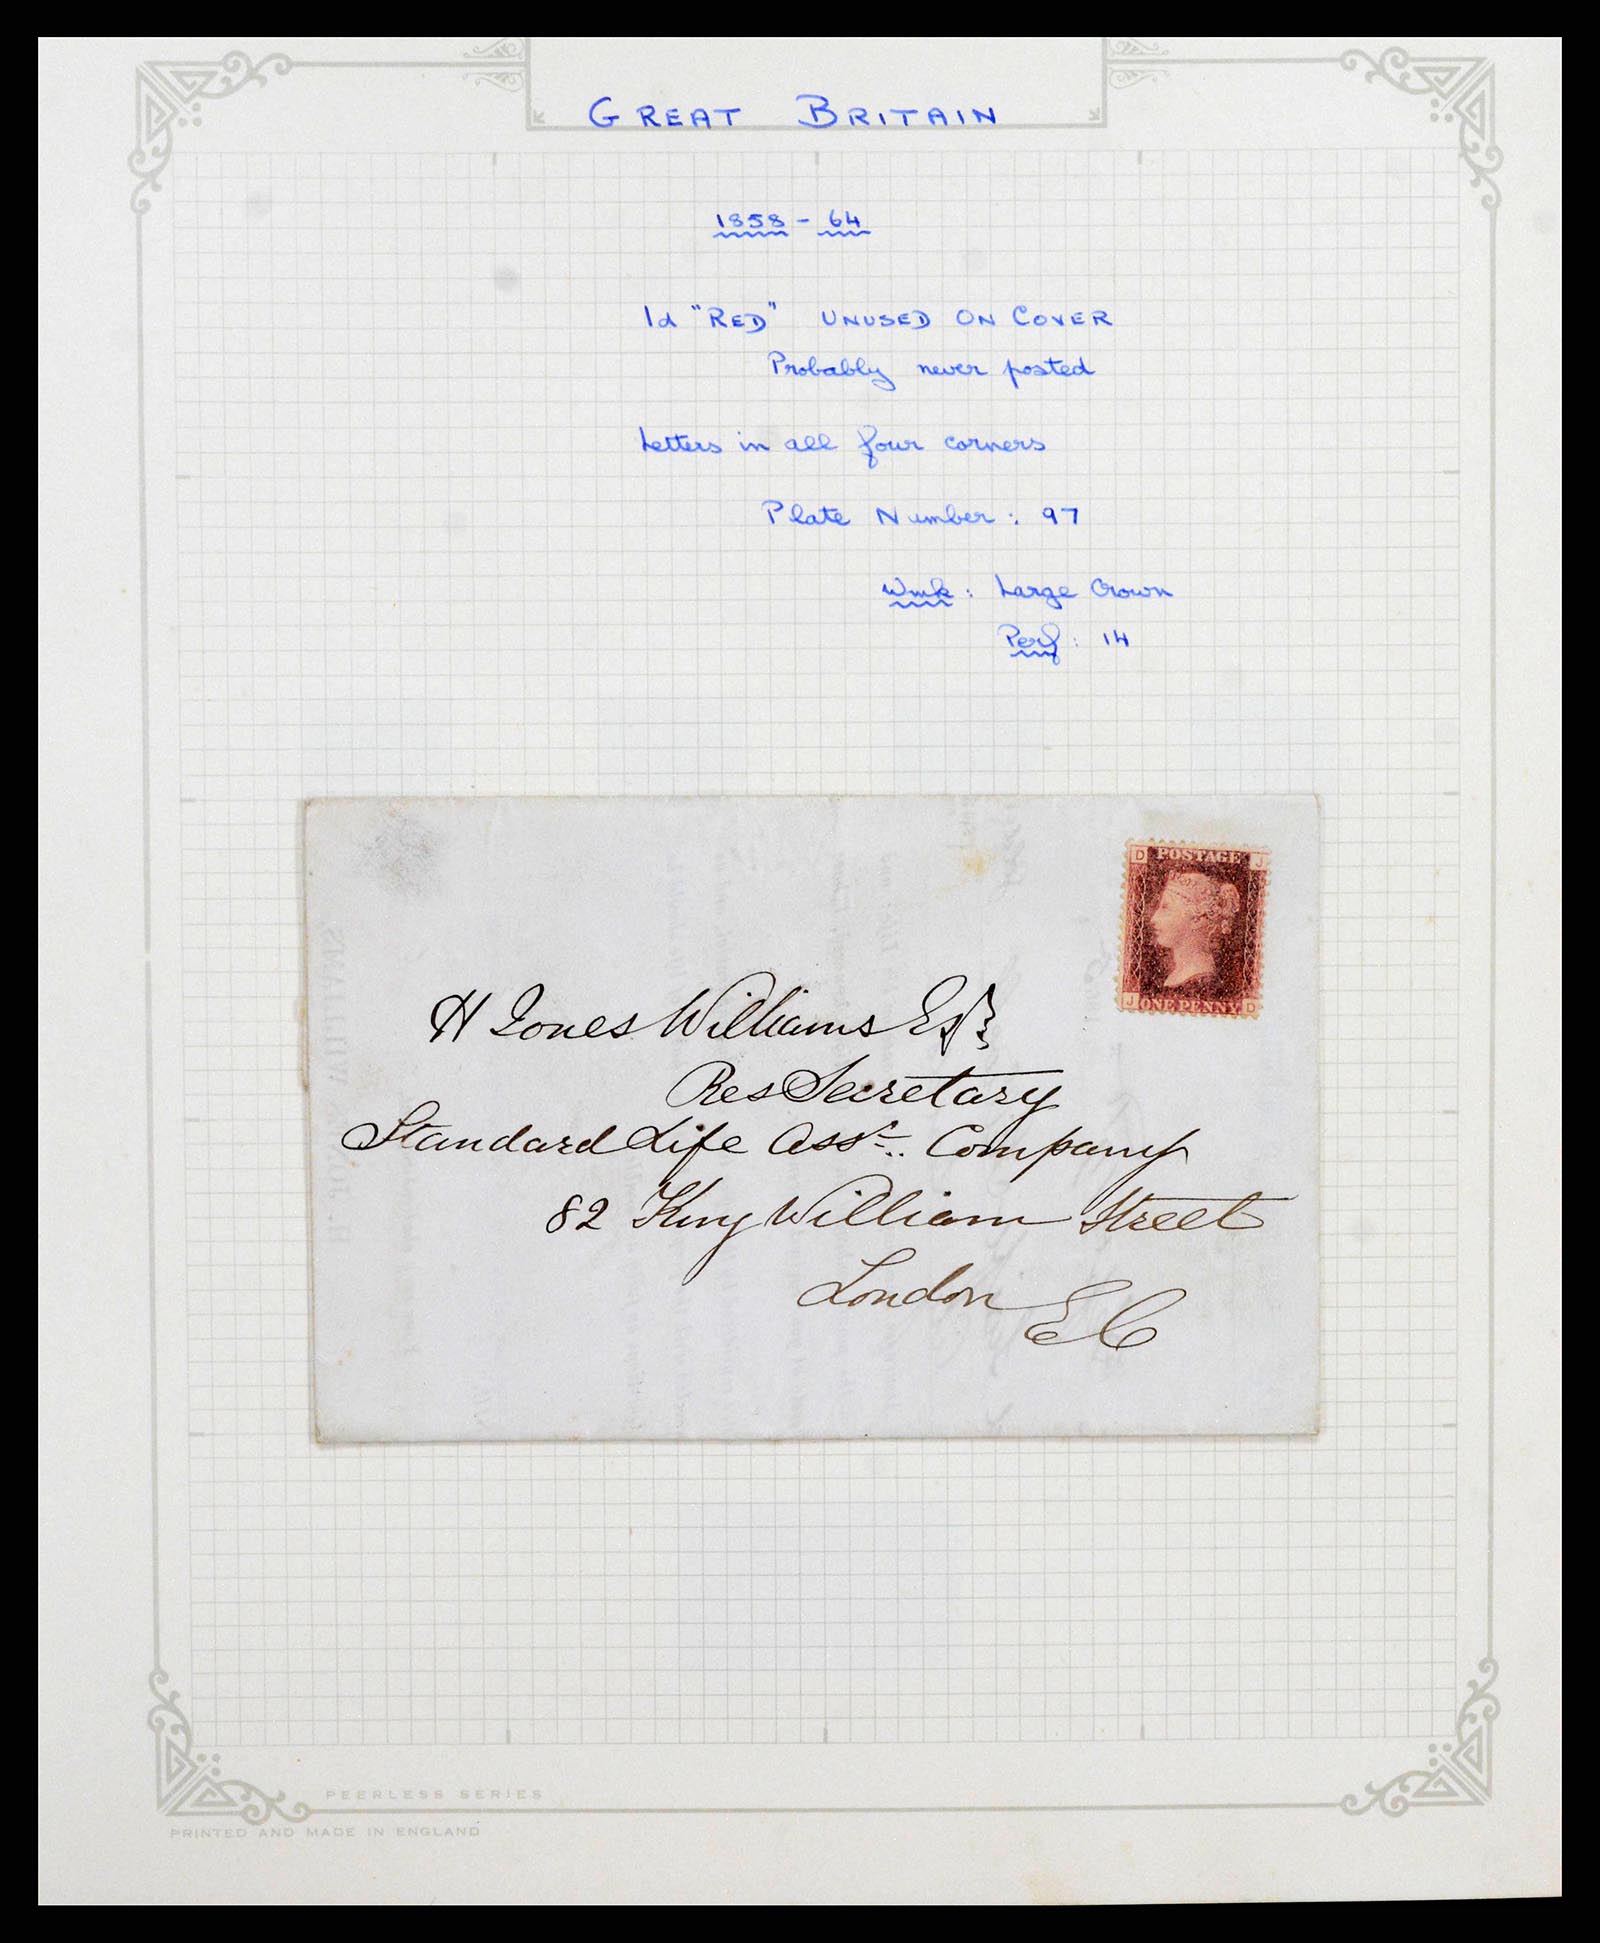 GREAT BRITAIN
1858 - 64
1d "RED" UNUSED ON COVER
Probably never posted
Letters in all four corners
Plate Number: 97
Wmk: Large Crown
Perf: 14
D POSTAGE J
J ONE PENNY D
H Jones Williams Esqr
Res Secretary
Standard Life Assce.. Company
82 King William Street
London
EC
PEERLESS SERIES
PRINTED AND MADE IN ENGLAND